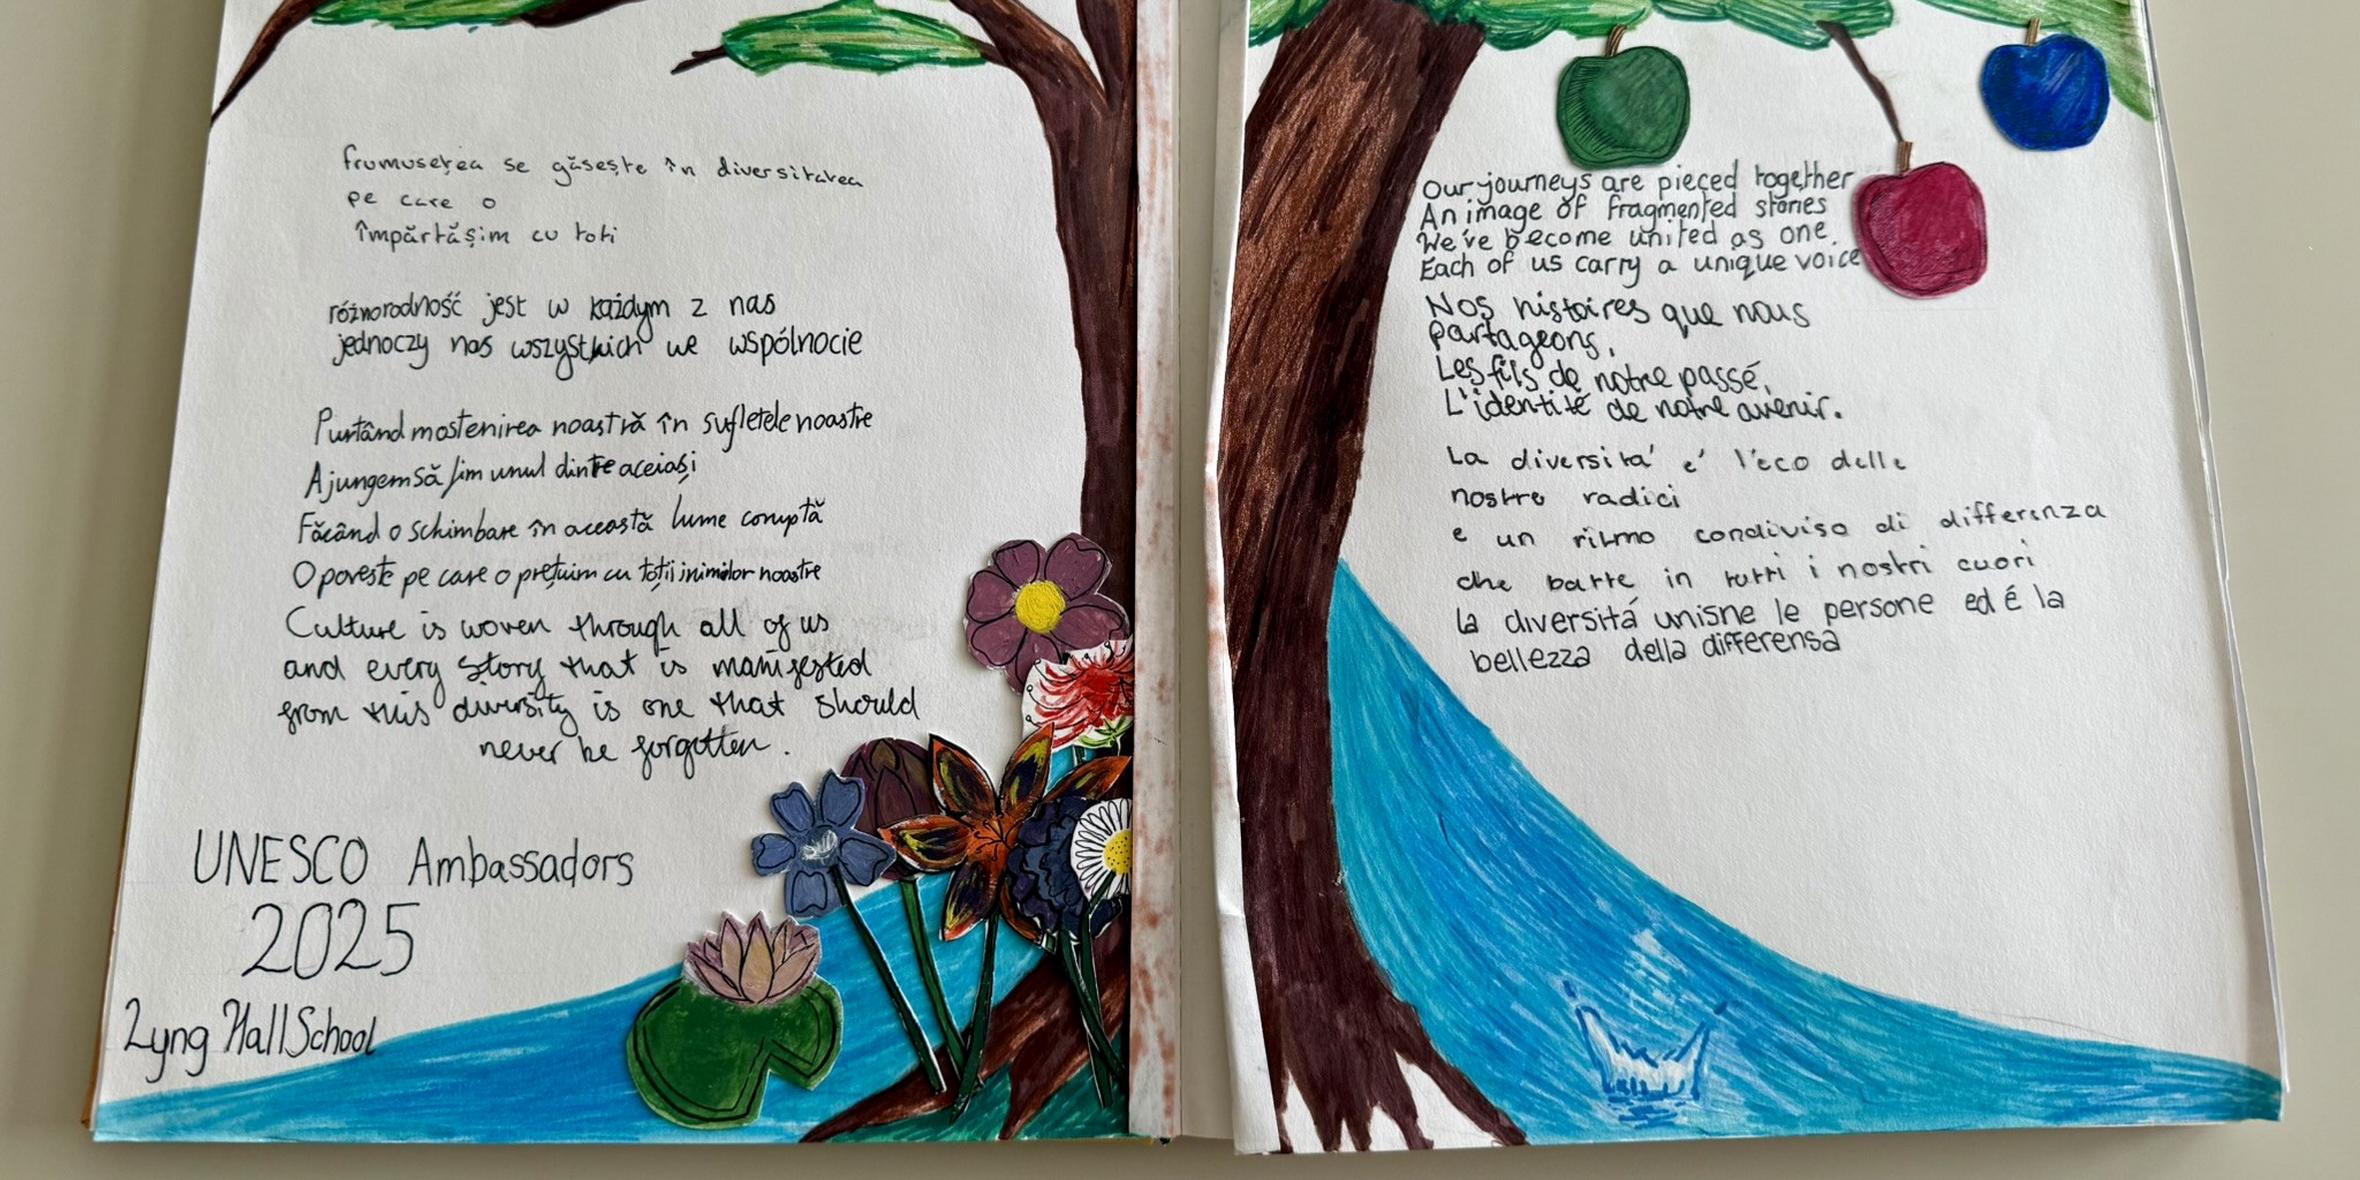 frumusețea se găsește în diversitatea
pe care o
împărtășim cu toti
różnorodność jest w każdym z nas
jednoczy nas wszystkich we wspólnocie
Purtând mostenirea noastră în sufletele noastre
Ajungem să fim unul dintre aceiași
Făcând o schimbare în această lume coruptă
O poveste pe care o prețuim cu toții inimilor noastre
Culture is woven through all of us
and every story that is manifested
from this diversity is one that should
never be forgotten.
UNESCO Ambassadors
2025
Lyng Hall School
Our journeys are pieced together
An image of fragmented stories
We've become united as one.
Each of us carry a unique voice
Nos histoires que nous
partageons,
Les fils de notre passé,
L'identité de notre avenir.
La diversita' e' l'eco delle
nostre radici
e un ritmo condiviso di differenza
che batte in tutti i nostri cuori
la diversitá unisne le persone ed é la
bellezza della differensa